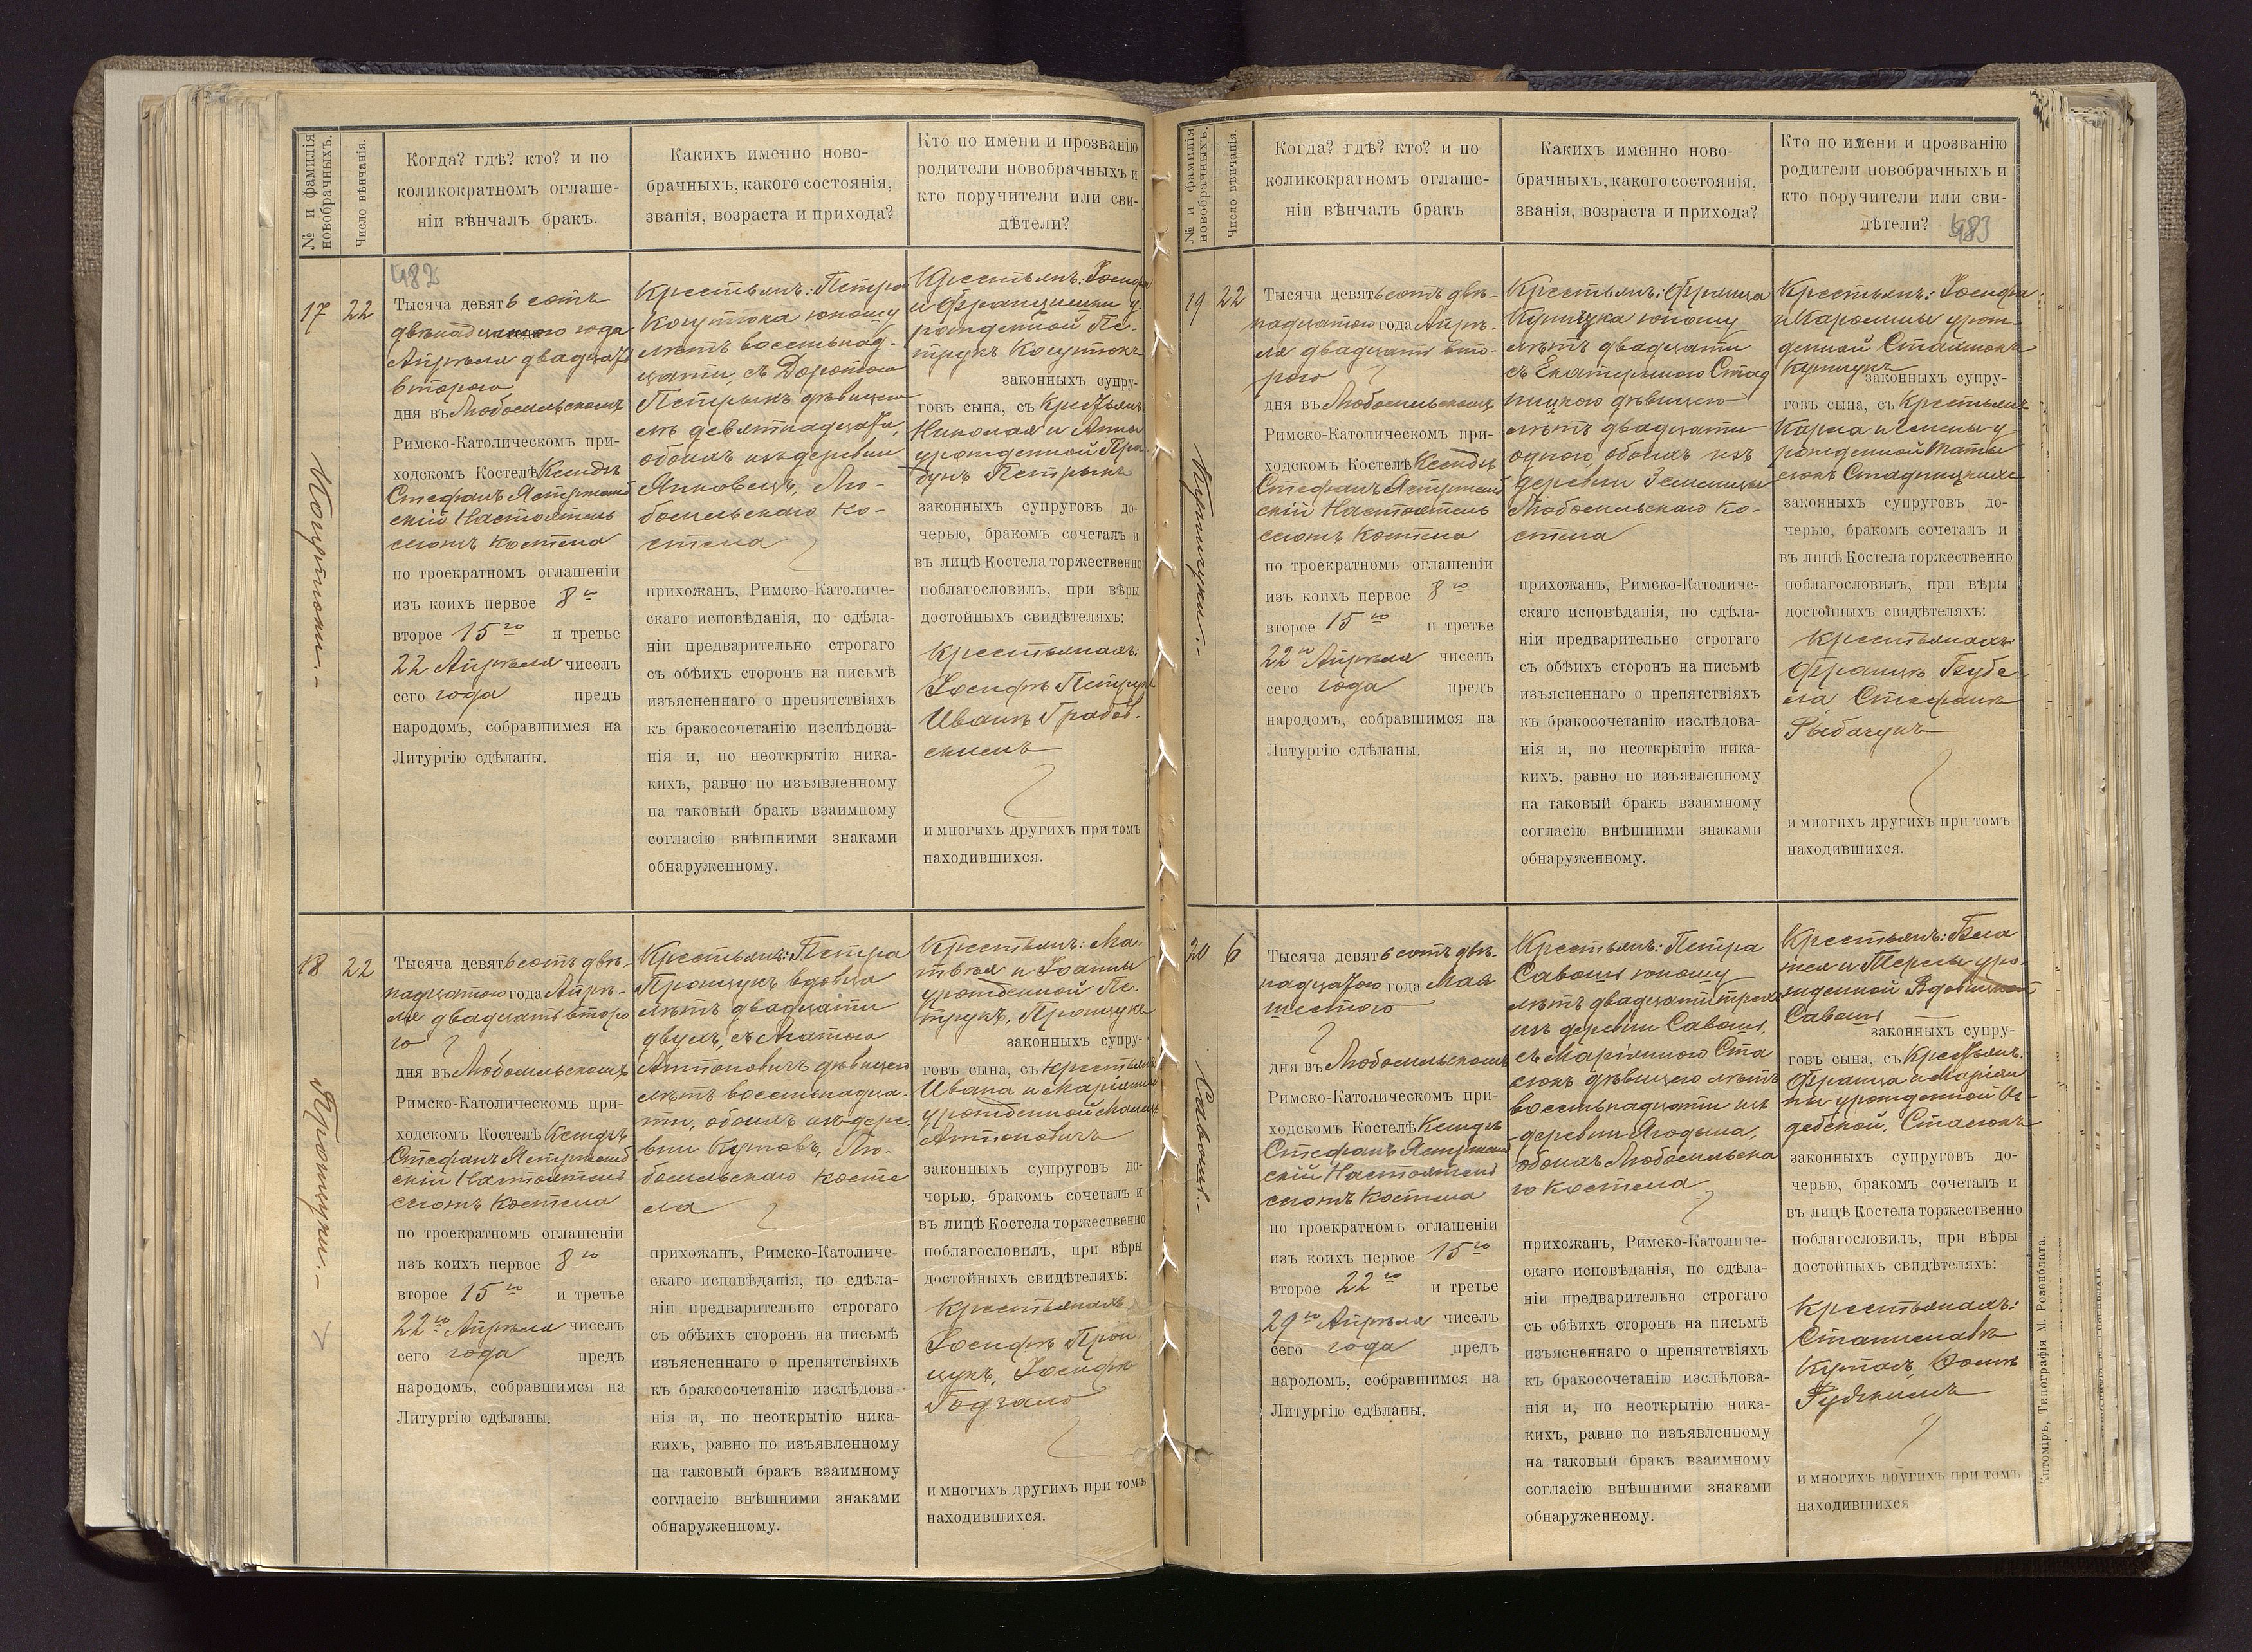 № и фамилія новобрачныхъ.
Число вѣнчанія.
Когда? гдѣ? кто? и по
коликократномъ оглаше-
ніи вѣнчалъ бракъ.
Какихъ именно ново-
брачныхъ, какого состоянія,
званія, возраста и прихода?
Кто по имени и прозванію
родители новобрачныхъ и
кто поручители или сви-
дѣтели?
482
17
22
Тысяча девятьсотъ
двѣнадцатого года
Апрѣля двадцать
второго
дня въ Любомльскомъ
Римско-Католическомъ при-
ходскомъ Костелѣ Ксендзъ
Стефанъ Ястржемб
скій Настоятель
сего костела
по троекратномъ оглашеніи
изъ коихъ первое 8го
второе 15го и третье
22 Апрѣля чиселъ
сего года предъ
народомъ, собравшимся на
Литургію сдѣланы.
Крестьянъ: Петра
юношу
лѣтъ восемнад-
цати, съ Доротою
Петрыкъ дѣвицею
лѣтъ девятнадцати,
обоихъ изъ деревни
Янковецъ, Лю-
бомльскаго ко-
стела
прихожанъ, Римско-Католиче-
скаго исповѣданія, по сдѣла-
ніи предварительно строгаго
съ обѣихъ сторонъ на письмѣ
изъясненнаго о препятствіяхъ
къ бракосочетанію изслѣдова-
нія и, по неоткрытію ника-
кихъ, равно по изъявленному
на таковый бракъ взаимному
согласію внѣшними знаками
обнаруженному.
Крестьянъ: Іосифа
и Францишки у-
рожденной Пе-
трукъ
законныхъ супру-
говъ сына, съ Крестьянъ
Николая и Анны
урожденной
Петрыкъ
законныхъ супруговъ до-
черью, бракомъ сочеталъ и
въ лицѣ Костела торжественно
поблагословилъ, при вѣры
достойныхъ свидѣтеляхъ:
Крестьянахъ:
Іосифѣ Петрукъ
Иванѣ Грабов-
скимъ
и многихъ другихъ при томъ
находившихся.
18
22
Процуки.-
Тысяча девятьсотъ двѣ-
надцатого года Апрѣ-
ля двадцать второ
го
дня въ Любомльскомъ
Римско-Католическомъ при-
ходскомъ Костелѣ Ксендзъ
Стефанъ Ястржемб
скій Настоятель
сего костела
по троекратномъ оглашеніи
изъ коихъ первое 8го
второе 15го и третье
22го Апрѣля чиселъ
сего года предъ
народомъ, собравшимся на
Литургію сдѣланы.
Крестьянъ: Петра
Процукъ вдовца
лѣтъ двадцати
двухъ, съ Агатою
Антоновичъ дѣвицею
лѣтъ восемнадца-
ти, обоихъ изъ дере
вни Куповъ, Лю-
бомльскаго косте
ла
прихожанъ, Римско-Католиче-
скаго исповѣданія, по сдѣла-
ніи предварительно строгаго
съ обѣихъ сторонъ на письмѣ
изъясненнаго о препятствіяхъ
къ бракосочетанію изслѣдова-
нія и, по неоткрытію ника-
кихъ, равно по изъявленному
на таковый бракъ взаимному
согласію внѣшними знаками
обнаруженному.
Крестьянъ: Ма-
твѣя и Іоанны
урожденной Пе-
трукъ, Процукъ
законныхъ супру-
говъ сына, съ крестьянъ
Ивана и Маріанны
урожденной
Антоновичъ
законныхъ супруговъ до-
черью, бракомъ сочеталъ и
въ лицѣ Костела торжественно
поблагословилъ, при вѣры
достойныхъ свидѣтеляхъ:
Крестьянахъ
Іосифѣ Про
цукъ, Іосифѣ
и многихъ другихъ при томъ
находившихся.
№ и фамилія новобрачныхъ.
Число вѣнчанія.
Когда? гдѣ? кто? и по
коликократномъ оглаше-
ніи вѣнчалъ бракъ
Какихъ именно ново-
брачныхъ, какого состоянія,
званія, возраста и прихода?
Кто по имени и прозванію
родители новобрачныхъ и
кто поручители или сви-
дѣтели?
483
19
22
Тысяча девятьсотъ двѣ-
надцатого года Апрѣ-
ля двадцать вто-
рого
дня въ Любомльскомъ
Римско-Католическомъ при-
ходскомъ Костелѣ Ксендзъ
Стефанъ Ястржемб
скій Настоятель
сего костела
по троекратномъ оглашеніи
изъ коихъ первое 8го
второе 15го и третье
22го Апрѣля чиселъ
сего года предъ
народомъ, собравшимся на
Литургію сдѣланы.
Крестьянъ: Франца
юношу
лѣтъ двадцати
съ Екатериною Стад
ницкою дѣвицею
лѣтъ двадцати
одного, обоихъ изъ
деревни
Любомльскаго ко-
стела
прихожанъ, Римско-Католиче-
скаго исповѣданія, по сдѣла-
ніи предварительно строгаго
съ обѣихъ сторонъ на письмѣ
изъясненнаго о препятствіяхъ
къ бракосочетанію изслѣдова-
нія и, по неоткрытію ника-
кихъ, равно по изъявленному
на таковый бракъ взаимному
согласію внѣшними знаками
обнаруженному.
Крестьянъ: Іосифа
и Каролины урож-
денной
законныхъ супру-
говъ сына, съ Крестьянъ
Карла и Елены у-
рожденной
Стадницкихъ
законныхъ супруговъ до-
черью, бракомъ сочеталъ и
въ лицѣ Костела торжественно
поблагословилъ, при вѣры
достойныхъ свидѣтеляхъ:
Крестьянахъ:
Францѣ Бубе
ла, Стефанѣ
Рыбачукъ
и многихъ другихъ при томъ
находившихся.
20
6
Савоши.-
Тысяча девятьсотъ двѣ-
надцатого года Мая
шестого
дня въ Любомльскомъ
Римско-Католическомъ при-
ходскомъ Костелѣ Ксендзъ
Стефанъ Ястржемб
скій Настоятель
сего костела
по троекратномъ оглашеніи
изъ коихъ первое 15го
второе 22го и третье
29го Апрѣля чиселъ
сего года предъ
народомъ, собравшимся на
Литургію сдѣланы.
Крестьянъ: Петра
Савоша юношу
лѣтъ двадцати трехъ
изъ деревни Савоши,
съ Маріянною Ста
сюкъ дѣвицею лѣтъ
восемнадцати изъ
деревни Ягодына,
обоихъ Любомльска
го костела
прихожанъ, Римско-Католиче-
скаго исповѣданія, по сдѣла-
ніи предварительно строгаго
съ обѣихъ сторонъ на письмѣ
изъясненнаго о препятствіяхъ
къ бракосочетанію изслѣдова-
нія и, по неоткрытію ника-
кихъ, равно по изъявленному
на таковый бракъ взаимному
согласію внѣшними знаками
обнаруженному.
Крестьянъ:
и Терезы уро-
жденной
Савоши
законныхъ супру-
говъ сына, съ Крестьянъ.
Франца и Маріан
ны урожденной
Стасюкъ
законныхъ супруговъ до-
черью, бракомъ сочеталъ и
въ лицѣ Костела торжественно
поблагословилъ, при вѣры
достойныхъ свидѣтеляхъ:
Крестьянахъ:
Станиславѣ
и многихъ другихъ при томъ
находившихся
Житоміръ, Типографія М. Розенблата.